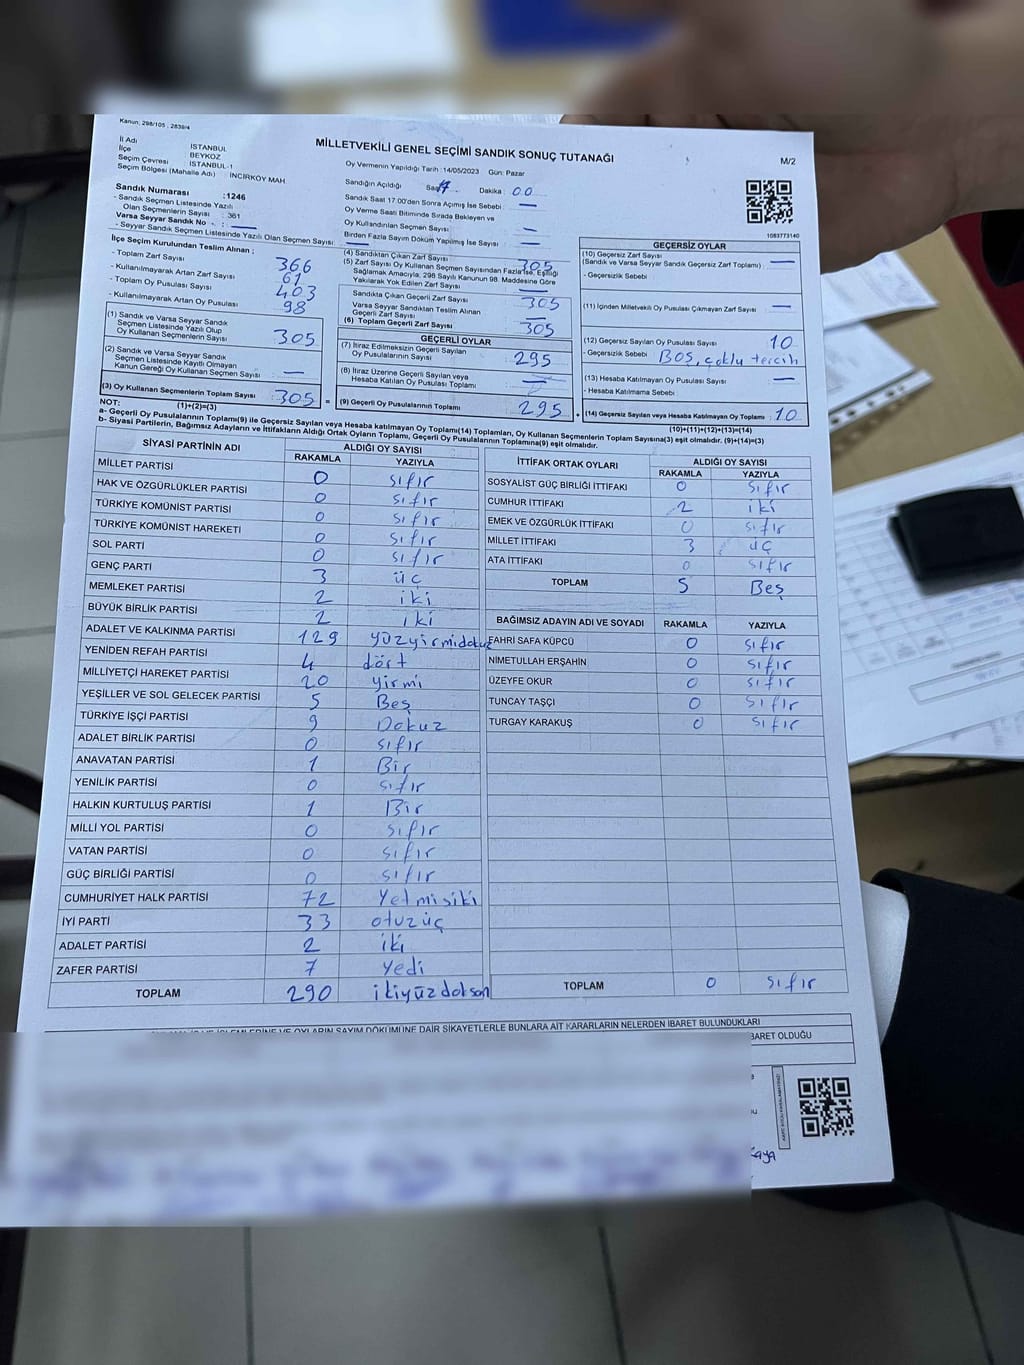 Kanun: 298/105, 2839/4
MİLLETVEKİLİ GENEL SEÇİMİ SANDIK SONUÇ TUTANAĞI
M/2
İl Adı : İSTANBUL
İlçe BEYKOZ
Seçim Çevresi : İSTANBUL-1
Seçim Bölgesi (Mahalle Adı) : İNCİRKÖY MAH
Sandık Numarası :1246
- Sandık Seçmen Listesinde Yazılı
Olan Seçmenlerin Sayısı : 361
Varsa Seyyar Sandık No - : —
- Seyyar Sandık Seçmen Listesinde Yazılı Olan Seçmen Sayısı : —
Oy Vermenin Yapıldığı Tarih : 14/05/2023 Gün: Pazar
Sandığın Açıldığı Saat 17 Dakika 00
Sandık Saat 17:00'den Sonra Açımış İse Sebebi : —
Oy Verme Saati Bitiminde Sırada Bekleyen ve
Oy Kullandırılan Seçmen Sayısı —
Birden Fazla Sayım Döküm Yapılmış İse Sayısı : —
1083773140
İlçe Seçim Kurulundan Teslim Alınan ;
- Toplam Zarf Sayısı 366
- Kullanılmayarak Artan Zarf Sayısı 61
- Toplam Oy Pusulası Sayısı 403
- Kullanılmayarak Artan Oy Pusulası 98
(1) Sandık ve Varsa Seyyar Sandık
Seçmen Listesinde Yazılı Olup
Oy Kullanan Seçmenlerin Sayısı 305
(2) Sandık ve Varsa Seyyar Sandık
Seçmen Listesinde Kayıtlı Olmayan
Kanun Gereği Oy Kullanan Seçmen Sayısı —
(3) Oy Kullanan Seçmenlerin Toplam Sayısı 305 =
(1)+(2)=(3)
(4) Sandıktan Çıkan Zarf Sayısı 305
(5) Zarf Sayısı Oy Kullanan Seçmen Sayısından Fazla İse, Eşitliği
Sağlamak Amacıyla, 298 Sayılı Kanunun 98. Maddesine Göre
Yakılarak Yok Edilen Zarf Sayısı
Sandıkta Çıkan Geçerli Zarf Sayısı 305
Varsa Seyyar Sandıktan Teslim Alınan
Geçerli Zarf Sayısı —
(6) Toplam Geçerli Zarf Sayısı 305
GEÇERLİ OYLAR
(7) İtiraz Edilmeksizin Geçerli Sayılan
Oy Pusulalarının Sayısı 295
(8) İtiraz Üzerine Geçerli Sayılan veya
Hesaba Katılan Oy Pusulası Toplamı —
(9) Geçerli Oy Pusulalarının Toplamı 295 +
GEÇERSİZ OYLAR
(10) Geçersiz Zarf Sayısı
(Sandık ve Varsa Seyyar Sandık Geçersiz Zarf Toplamı) —
- Geçersizlik Sebebi :
(11) İçinden Milletvekili Oy Pusulası Çıkmayan Zarf Sayısı : —
(12) Geçersiz Sayılan Oy Pusulası Sayısı 10
- Geçersizlik Sebebi : BOŞ, çoklu tercih
(13) Hesaba Katılmayan Oy Pusulası Sayısı : —
- Hesaba Katılmama Sebebi :
(14) Geçersiz Sayılan veya Hesaba Katılmayan Oy Toplamı 10
(10)+(11)+(12)+(13)=(14)
NOT:
a- Geçerli Oy Pusulalarının Toplamı(9) ile Geçersiz Sayılan veya Hesaba Katılmayan Oy Toplamı(14) Toplamları, Oy Kullanan Seçmenlerin Toplam Sayısına(3) eşit olmalıdır. (9)+(14)=(3)
b- Siyasi Partilerin, Bağımsız Adayların ve İttifakların Aldığı Ortak Oyların Toplamı, Geçerli Oy Pusulalarının Toplamına(9) eşit olmalıdır.
SİYASİ PARTİNİN ADI ALDIĞI OY SAYISI
RAKAMLA YAZIYLA
MİLLET PARTİSİ 0 sıfır
HAK VE ÖZGÜRLÜKLER PARTİSİ 0 sıfır
TÜRKİYE KOMÜNİST PARTİSİ 0 sıfır
TÜRKİYE KOMÜNİST HAREKETİ 0 sıfır
SOL PARTİ 0 sıfır
GENÇ PARTİ 3 üç
MEMLEKET PARTİSİ 2 iki
BÜYÜK BİRLİK PARTİSİ 2 iki
ADALET VE KALKINMA PARTİSİ 129 yüzyirmidokuz
YENİDEN REFAH PARTİSİ 4 dört
MİLLİYETÇİ HAREKET PARTİSİ 20 yirmi
YEŞİLLER VE SOL GELECEK PARTİSİ 5 Beş
TÜRKİYE İŞÇİ PARTİSİ 9 Dokuz
ADALET BİRLİK PARTİSİ 0 sıfır
ANAVATAN PARTİSİ 1 Bir
YENİLİK PARTİSİ 0 sıfır
HALKIN KURTULUŞ PARTİSİ 1 Bir
MİLLİ YOL PARTİSİ 0 sıfır
VATAN PARTİSİ 0 sıfır
GÜÇ BİRLİĞİ PARTİSİ 0 sıfır
CUMHURİYET HALK PARTİSİ 72 Yetmişiki
İYİ PARTİ 33 otuzüç
ADALET PARTİSİ 2 iki
ZAFER PARTİSİ 7 Yedi
TOPLAM 290 ikiyüzdoksan
İTTİFAK ORTAK OYLARI ALDIĞI OY SAYISI
RAKAMLA YAZIYLA
SOSYALİST GÜÇ BİRLİĞİ İTTİFAKI 0 sıfır
CUMHUR İTTİFAKI 2 iki
EMEK VE ÖZGÜRLÜK İTTİFAKI 0 sıfır
MİLLET İTTİFAKI 3 üç
ATA İTTİFAKI 0 sıfır
TOPLAM 5 Beş
BAĞIMSIZ ADAYIN ADI VE SOYADI RAKAMLA YAZIYLA
FAHRİ SAFA KÜPCÜ 0 sıfır
NİMETULLAH ERŞAHİN 0 sıfır
ÜZEYFE OKUR 0 sıfır
TUNCAY TAŞÇI 0 sıfır
TURGAY KARAKUŞ 0 sıfır
TOPLAM 0 sıfır
OYLARIN SAYIM DÖKÜMÜNE DAİR ŞİKAYETLERLE BUNLARA AİT KARARLARIN NELERDEN İBARET BULUNDUKLARI
İBARET OLDUĞU